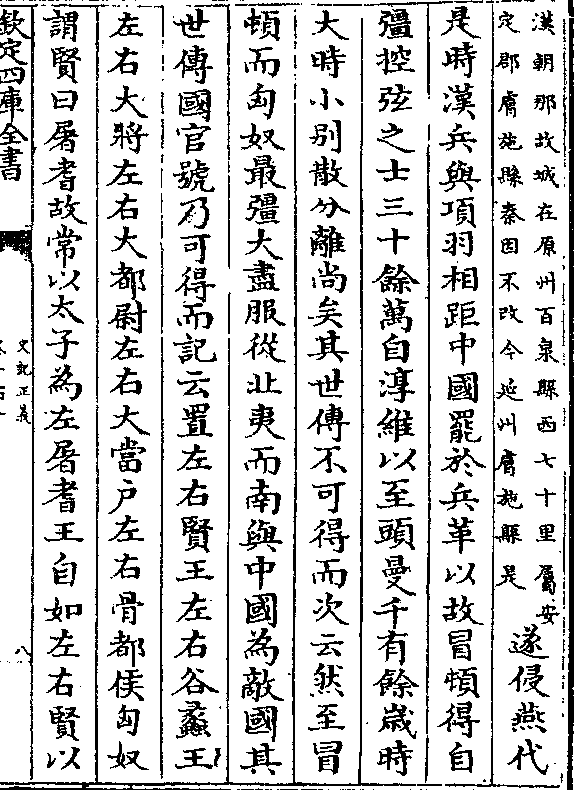 漢朝那故城在原州百泉縣西七十里屬安
定郡膚施縣秦因不改今延州膚施縣是
遂侵燕代
是時漢兵與項羽相距中國罷於兵革以故冒頓得自
彊控弦之士三十餘萬自淳維以至頭曼千有餘歲時
大時小别散分離尚矣其世傳不可得而次云然至冒
頓而匈奴最彊大盡服從北夷而南與中國為敵國其
世傳國官號乃可得而記云置左右賢王左右谷蠡王
左右大將左右大都尉左右大當户左右骨都侯匈奴
謂賢曰屠耆故常以太子為左屠耆王自如左右賢以
欽定四庫全書
史記正義
八